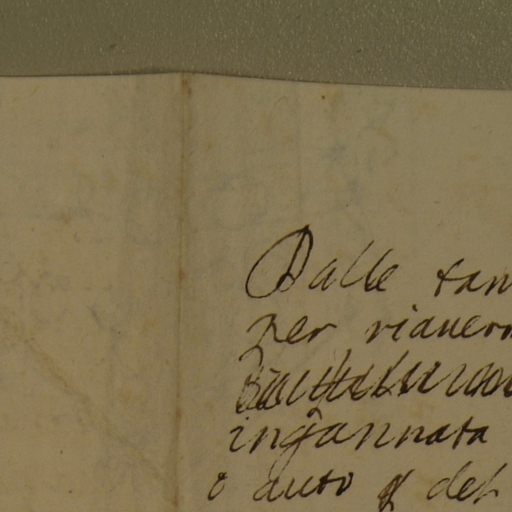 Dalle tan
per riauer
ingannata
o auto p del